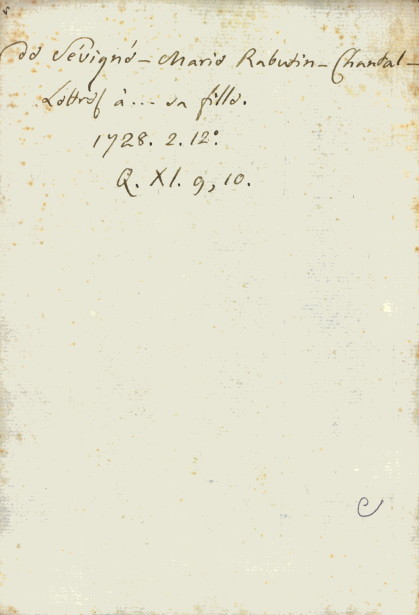 de Sévigné - Marie Rabutin - Chantal -
Lettres à ... sa fille.
1728. 2. 12º.
Q. XI. 9, 10.